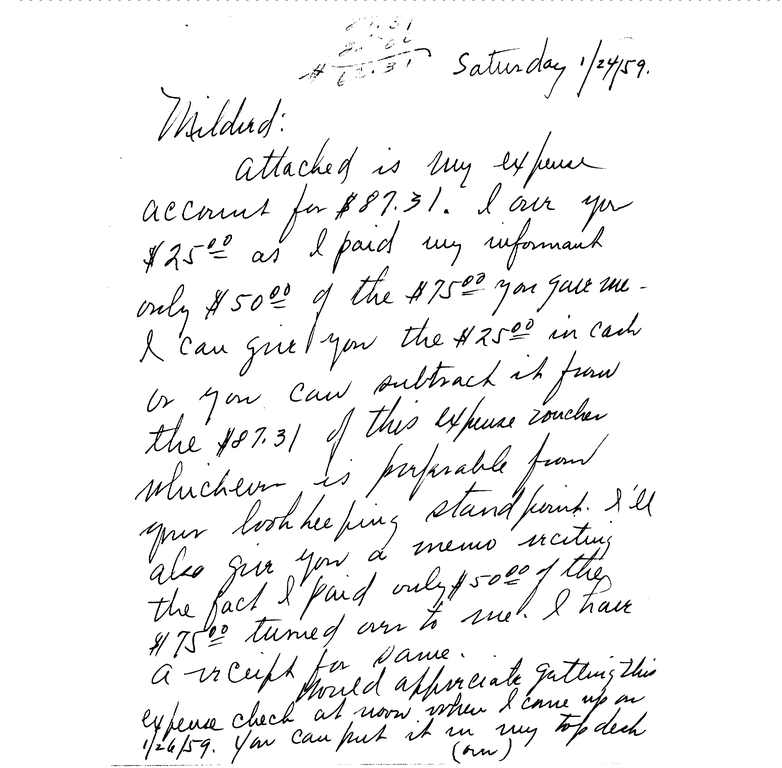 87.31
$ 62.31
Saturday 1/24/59.
Mildred:
Attached is my expense
account for $87.31. I owe you
$25.00 as I paid my informant
only $50.00 of the $75.00 you gave me-
I can give you the $25.00 in cash
or you can subtract it from
the $87.31 of this expense voucher
whichever is preferable from
your bookkeeping standpoint. I'll
also give you a memo reciting
the fact I paid only $50.00 of the
$75.00 turned over to me. I have
a receipt for same.
Would appreciate getting this
expense check at noon when I come up on
1/26/59. You can put it in my top desk
(over)